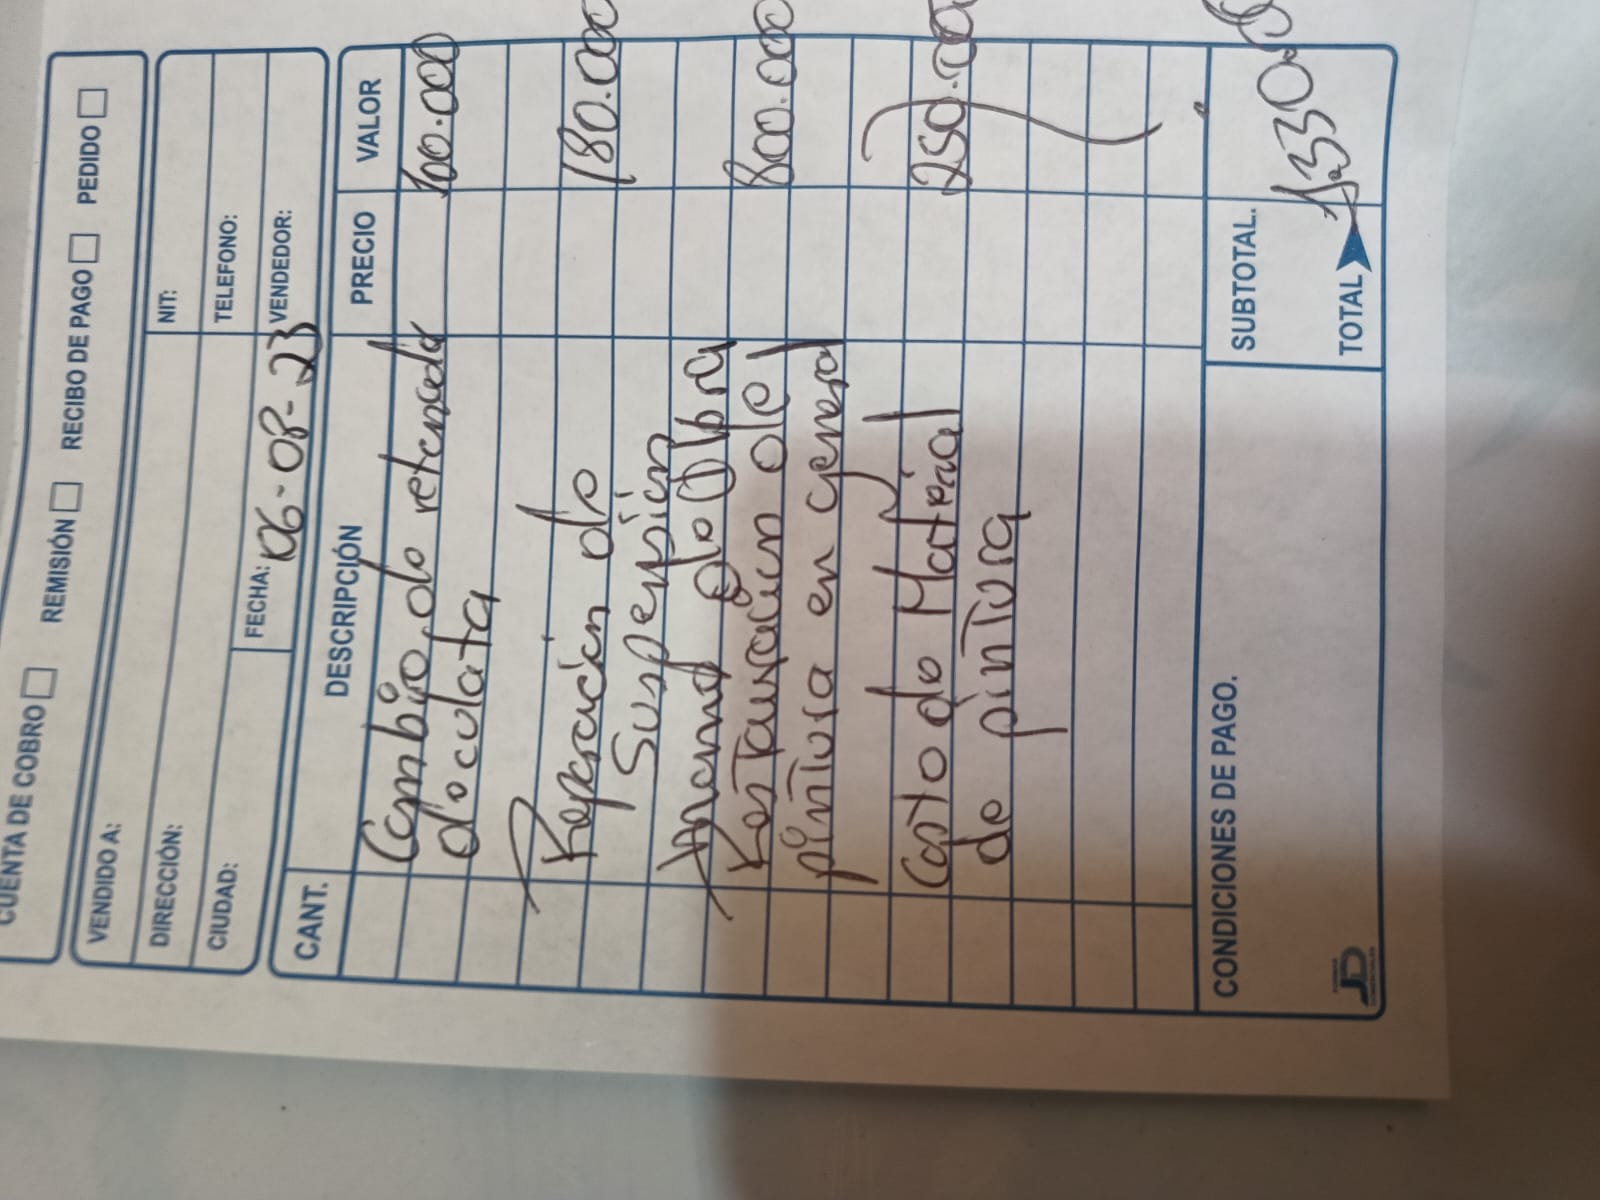 CUENTA DE COBRO REMISIÓN RECIBO DE PAGO PEDIDO
VENDIDO A:
NIT:
DIRECCIÓN:
TELEFONO:
CIUDAD:
FECHA: 06-08-23
VENDEDOR:
CANT. DESCRIPCIÓN PRECIO VALOR
Cambio de retenedor 100.000
de culata
Reparación de 180.000
Suspensión
Mano de Obra
Restauración de 800.000
pintura en general
Costo de Material 250.000
de pintura
CONDICIONES DE PAGO.
SUBTOTAL.
TOTAL
JD